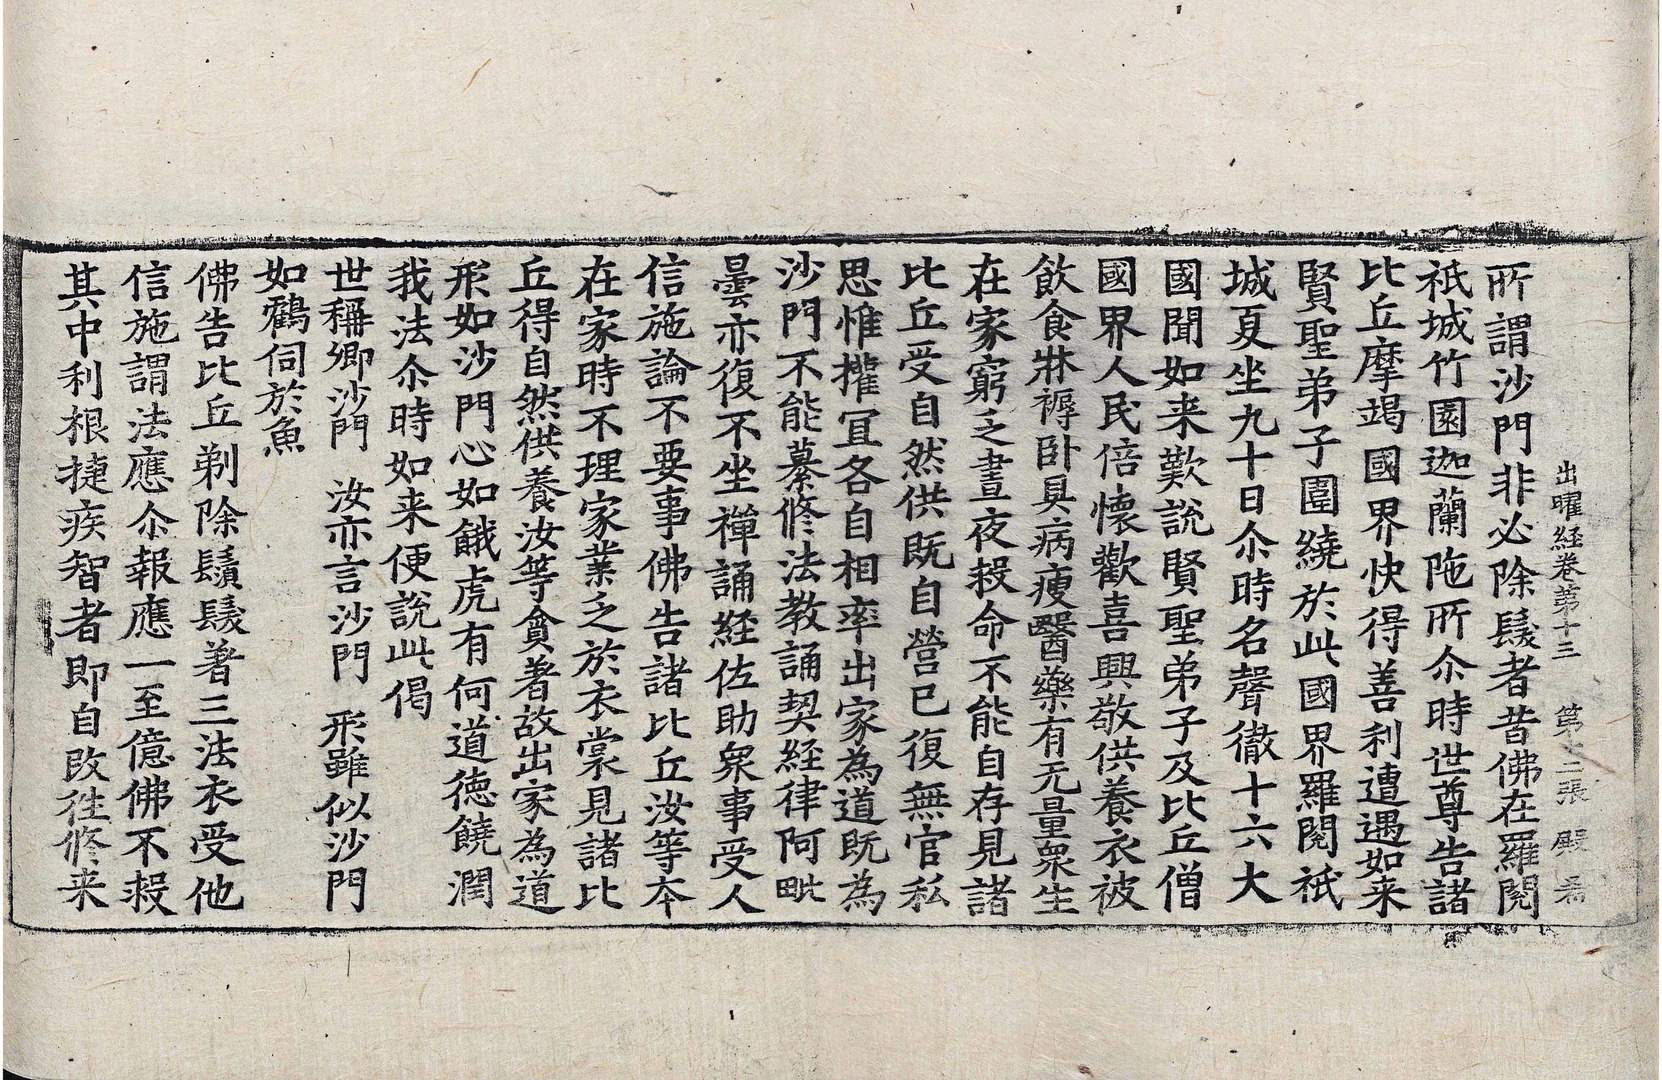 出曜経卷苐十三 第十二張 殿
所謂沙門非必除鬚髮者昔佛在羅閱
祇城竹園迦蘭陁所尒時世尊告諸
比丘摩竭國界快得善利遭遇如来
賢聖弟子圍繞於此國界羅閱祇
城夏坐九十日尒時名聲徹十六大
國聞如来歎說賢聖弟子及比丘僧
國界人民倍懷歡喜興敬供養衣被
飲食牀褥卧具病瘦醫藥有无量衆生
在家窮乏晝夜㲉命不能自存見諸
比丘受自然供既自營已復無官私
思惟權冝各自相率出家為道既為
沙門不能纂修法教誦契経律阿毗
曇亦復不坐禪誦経佐助衆事受人
信施論不要事佛告諸比丘汝等夲
在家時不理家業乏於衣裳見諸比
丘得自然供養汝等貪著故出家為道
形如沙門心如餓虎有何道德饒潤
我法尒時如来便說此偈
世稱卿沙門 汝亦言沙門 形雖似沙門
如鸛伺於魚
佛告比丘剃除鬚髮著三法衣受他
信施謂法應尒報應一至億佛不救
其中利根捷疾智者即自改徃修来